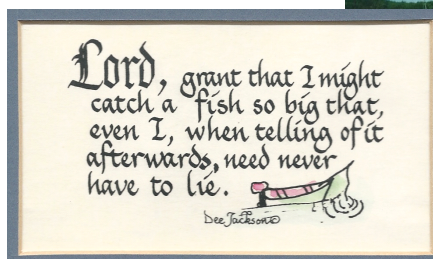 Lord, grant that I might
catch a fish so big that,
even I, when telling of it
afterwards, need never
have to lie.
Dee Jackson©